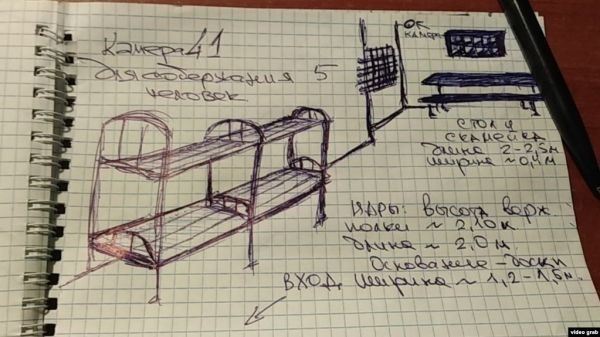 Камера 41
для содержания 5
человек
ОК
КАМЕРЫ
СТОЛ И
СКАМЕЙКА
длина 2-2,5м
ширина ~0,4м
НАРЫ: высота верх
полки ~ 2,10м
длина ~ 2,0м
Основание - доски
ширина ~ 1,2-1,5м
ВХОД
video grab